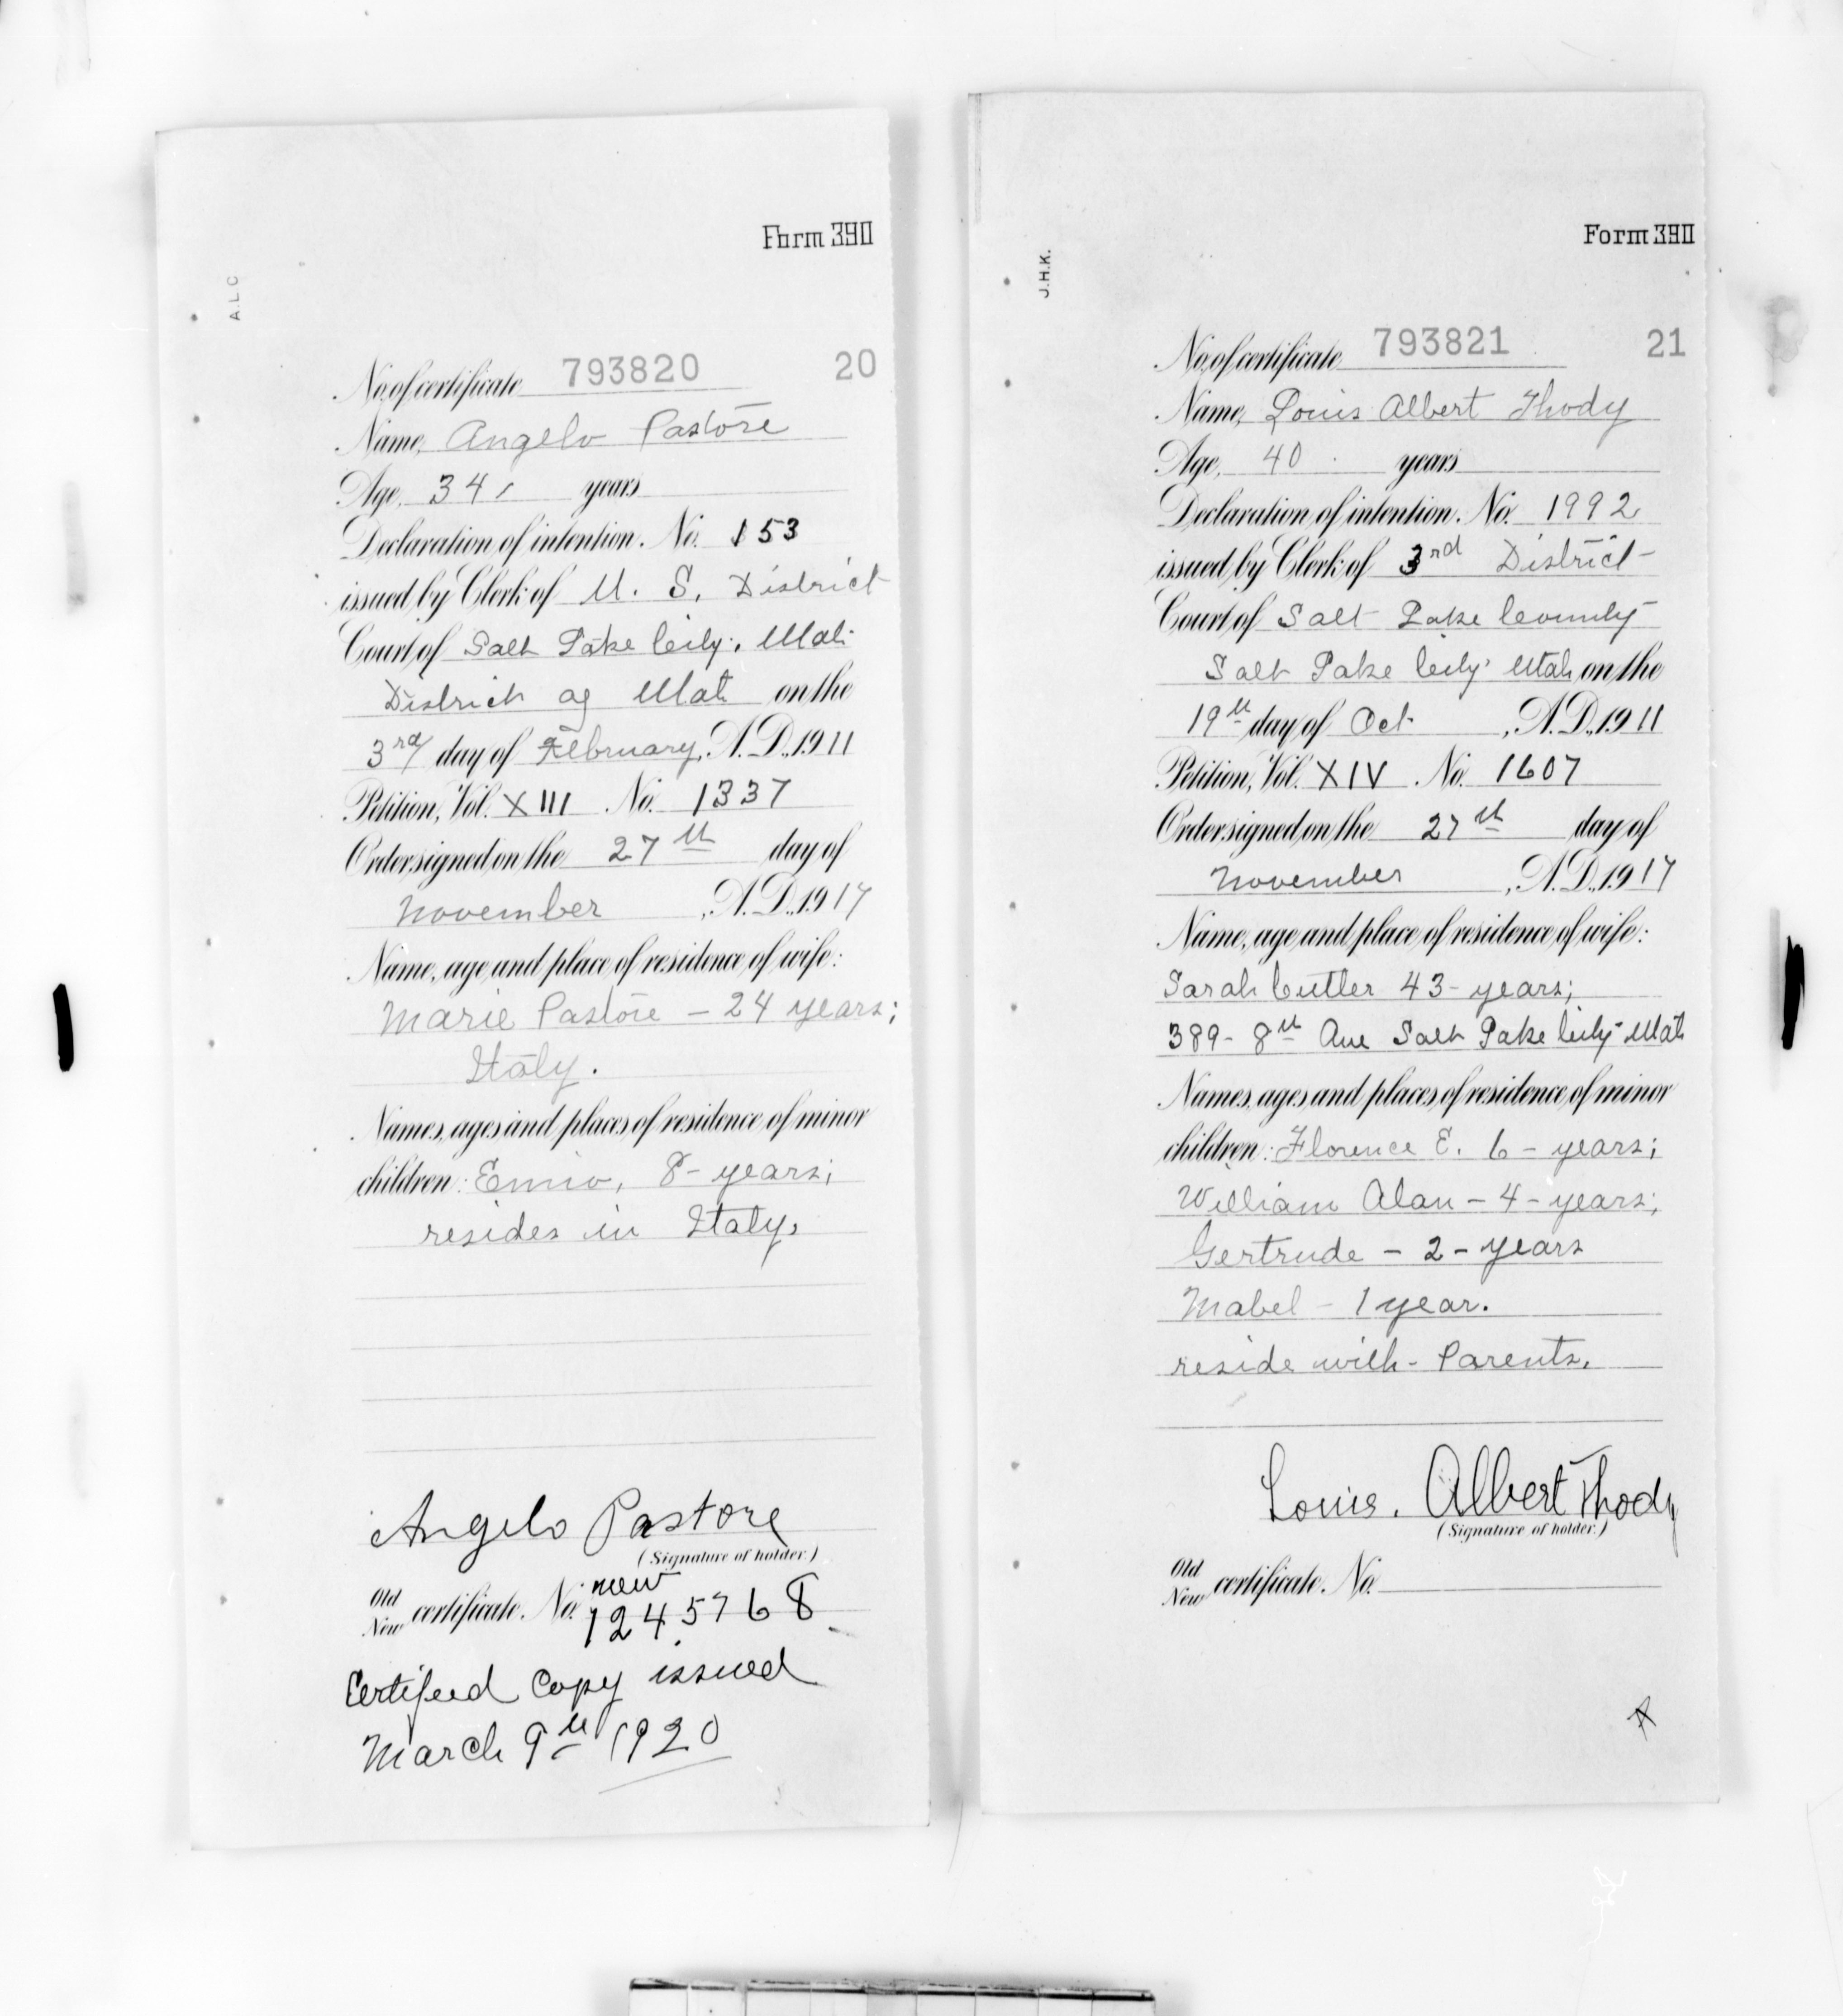 Form 390
A.L.C
No. of certificate 793820 20
Name, Angelo Pastore
Age, 34 years
Declaration of intention, No. 153
issued by Clerk of U. S. District
Court of Salt Lake City, Utah
District of Utah on the
3rd day of February, A.D., 1911
Petition, Vol. XIII No. 1337
Order signed on the 27th day of
November, A.D., 1917
Name, age and place of residence of wife:
Marie Pastore - 24 years;
Italy.
Names, ages and places of residence of minor
children: Ennio, 8 - years;
resides in Italy.
Angelo Pastore
(Signature of holder.)
Old
New certificate, No. new
1245768
Certified Copy issued
March 9th 1920
Form 390
J.H.K.
No. of certificate 793821 21
Name, Louis Albert Thody
Age, 40 years
Declaration of intention, No. 1992
issued by Clerk of 3rd District
Court of Salt Lake County
Salt Lake City Utah on the
19th day of Oct., A.D., 1911
Petition, Vol. XIV No. 1607
Order signed on the 27th day of
November, A.D., 1917
Name, age and place of residence of wife:
Sarah Cutler 43 - years;
389 - 8th Ave Salt Lake City Utah
Names, ages and places of residence of minor
children: Florence E. 6 - years;
William Alan - 4 - years;
Gertrude - 2 - years
Mabel - 1 year.
reside with - Parents.
Louis. Albert Thody
(Signature of holder.)
Old
New certificate, No.